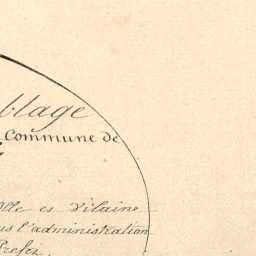 blage
Commune de
lle et Vilaine
us l'administration
Prefet.